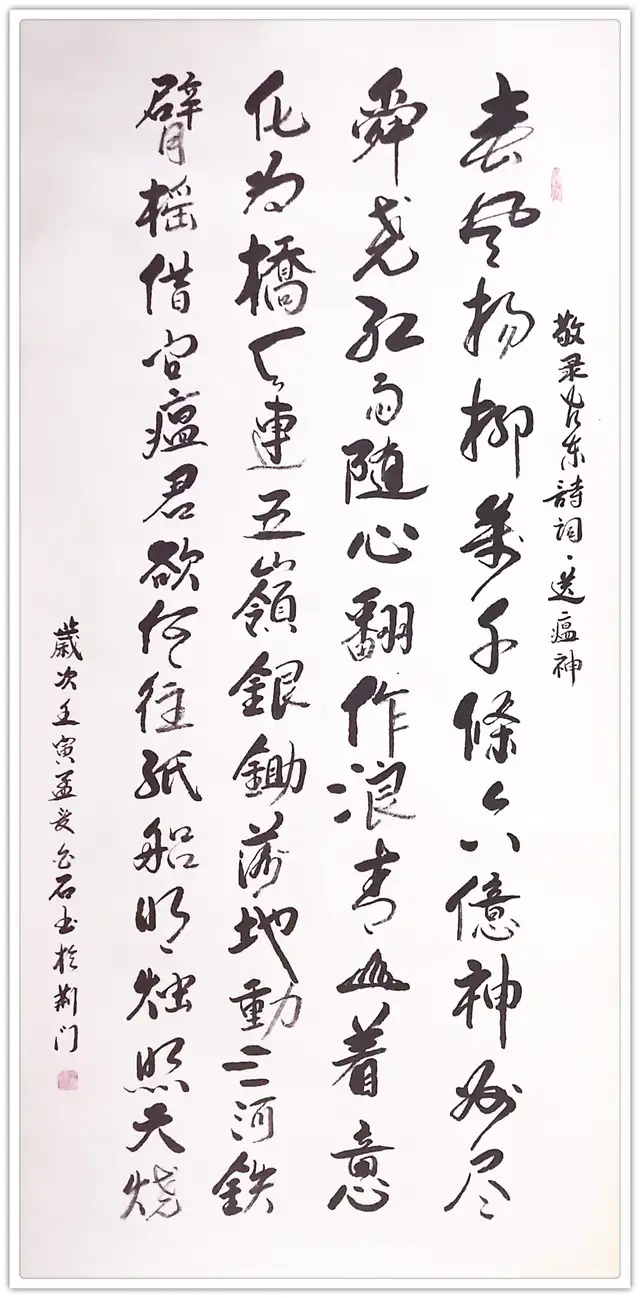 敬录毛泽东詩詞·送瘟神
春风杨柳萬千條六億神州尽
舜尧红雨随心翻作浪青山着意
化为橋天連五嶺銀鋤落地動三河鉄
臂摇借问瘟君欲何往紙船明烛照天烧
歲次壬寅孟夏石书於荆门